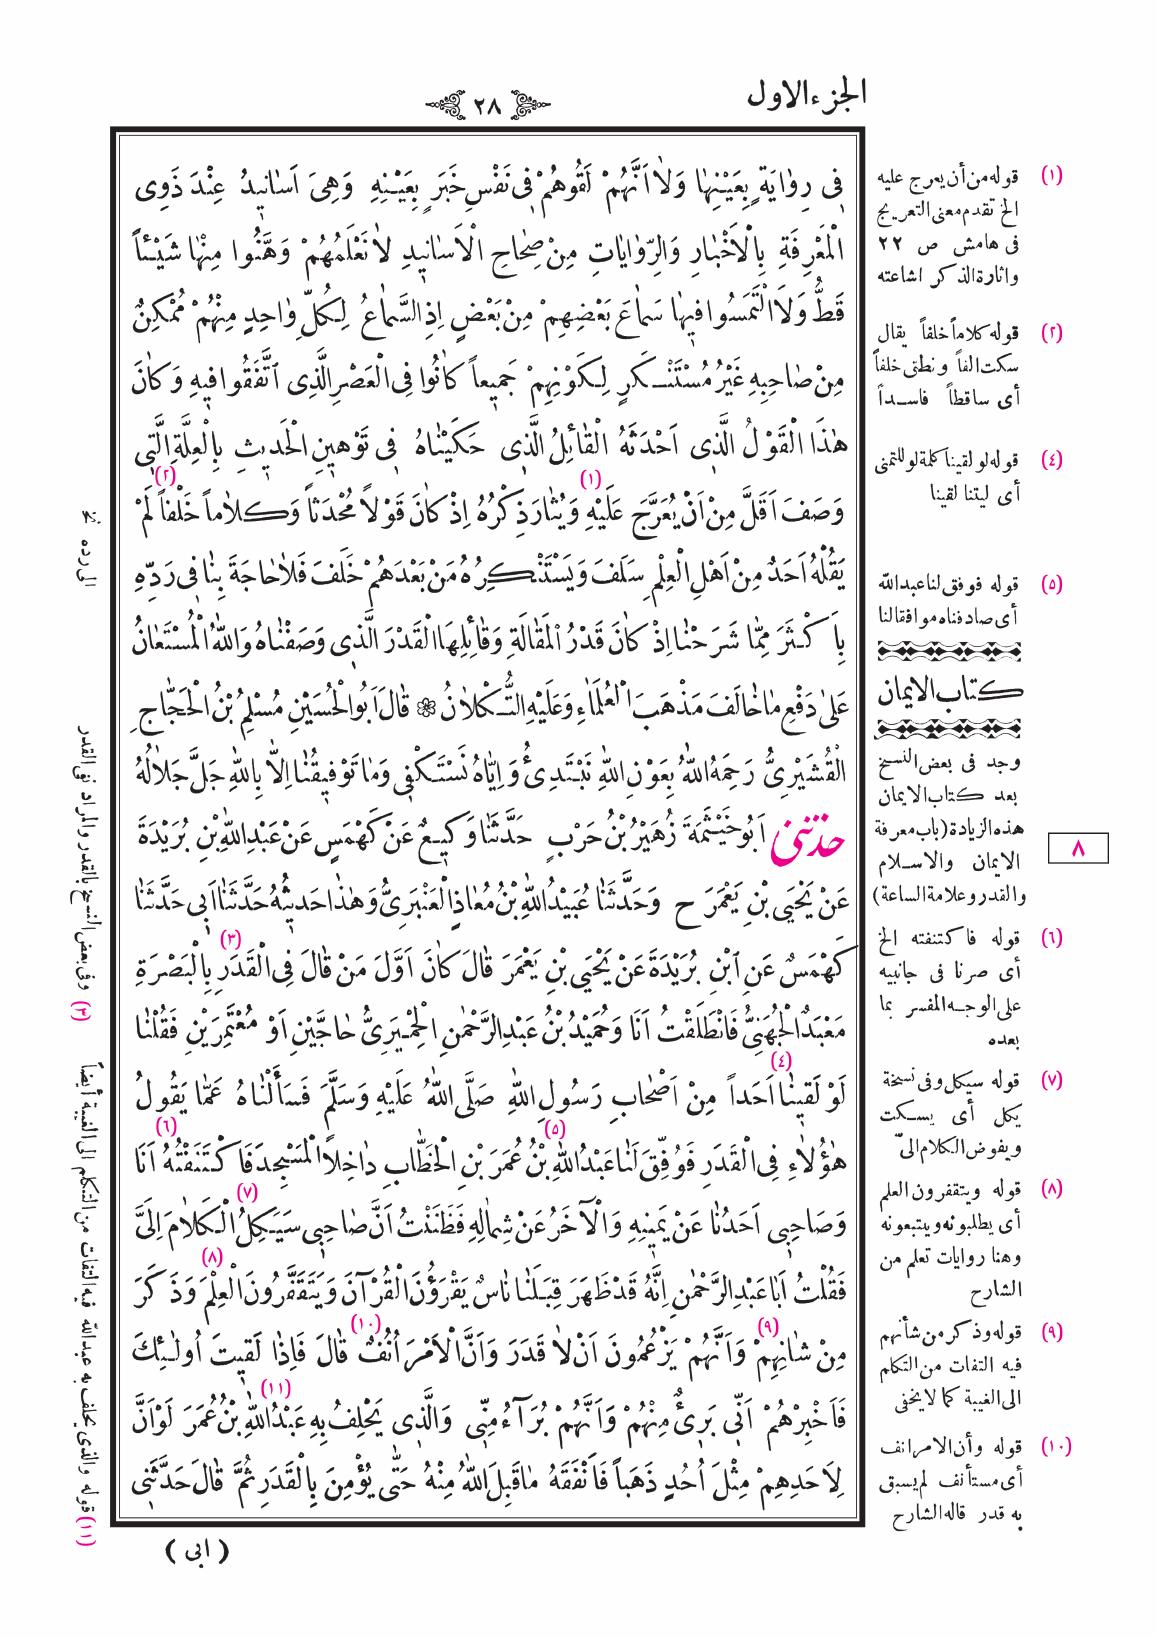 الجزء الاول
٢٨
فِى رِوَايَةٍ بِعَيْنِهَا وَلَا اَنَّهُمْ لَقُوهُمْ فِى نَفْسِ خَبَرٍ بِعَيْنِهِ وَهِىَ اَسَانِيدُ عِنْدَ ذَوِى
الْمَعْرِفَةِ بِالْاَخْبَارِ وَالرِّوَايَاتِ مِنْ صِحَاحِ الْاَسَانِيدِ لَا نَعْلَمُهُمْ وَهَّنُوا مِنْهَا شَيْئاً
قَطُّ وَلَا الْتَمَسُوا فِيهَا سَمَاعَ بَعْضِهِمْ مِنْ بَعْضٍ اِذِ السَّمَاعُ لِكُلِّ وَاحِدٍ مِنْهُمْ مُمْكِنٌ
مِنْ صَاحِبِهِ غَيْرُ مُسْتَنْكَرٍ لِكَوْنِهِمْ جَمِيعاً كَانُوا فِى الْعَصْرِ الَّذِى اتَّفَقُوا فِيهِ وَكَانَ
هٰذَا الْقَوْلُ الَّذِى اَحْدَثَهُ الْقَائِلُ الَّذِى حَكَيْنَاهُ فِى تَوْهِينِ الْحَدِيثِ بِالْعِلَّةِ الَّتِى
وَصَفَ اَقَلَّ مِنْ اَنْ يُعَرَّجَ عَلَيْهِ (١) وَيُثَارَ ذِكْرُهُ اِذْ كَانَ قَوْلاً مُحْدَثاً وَكَلَاماً خَلْفاً (٢) لَمْ
يَقُلْهُ اَحَدٌ مِنْ اَهْلِ الْعِلْمِ سَلَفَ وَيَسْتَنْكِرُهُ مَنْ بَعْدَهُمْ خَلَفَ فَلَا حَاجَةَ بِنَا فِى رَدِّهِ
بِاَكْثَرَ مِمَّا شَرَحْنَا اِذْ كَانَ قَدْرُ الْمَقَالَةِ وَقَائِلِهَا الْقَدْرَ الَّذِى وَصَفْنَاهُ وَاللّٰهُ الْمُسْتَعَانُ
عَلٰى دَفْعِ مَا خَالَفَ مَذْهَبَ الْعُلَمَاءِ وَعَلَيْهِ التُّكْلَانُ ❁ قَالَ اَبُو الْحُسَيْنِ مُسْلِمُ بْنُ الْحَجَّاجِ
الْقُشَيْرِىُّ رَحِمَهُ اللّٰهُ بِعَوْنِ اللّٰهِ نَبْتَدِئُ وَاِيَّاهُ نَسْتَكْفِى وَمَا تَوْفِيقُنَا اِلَّا بِاللّٰهِ جَلَّ جَلَالُهُ
حدثنى اَبُو خَيْثَمَةَ زُهَيْرُ بْنُ حَرْبٍ حَدَّثَنَا وَكِيعٌ عَنْ كَهْمَسٍ عَنْ عَبْدِ اللّٰهِ بْنِ بُرَيْدَةَ
عَنْ يَحْيَى بْنِ يَعْمَرَ ح وَحَدَّثَنَا عُبَيْدُ اللّٰهِ بْنُ مُعَاذٍ الْعَنْبَرِىُّ وَهٰذَا حَدِيثُهُ حَدَّثَنَا اَبِى حَدَّثَنَا
كَهْمَسٌ عَنِ ابْنِ بُرَيْدَةَ عَنْ يَحْيَى بْنِ يَعْمَرَ قَالَ كَانَ اَوَّلَ مَنْ قَالَ فِى الْقَدَرِ (٣) بِالْبَصْرَةِ
مَعْبَدٌ الْجُهَنِىُّ فَانْطَلَقْتُ اَنَا وَحُمَيْدُ بْنُ عَبْدِ الرَّحْمٰنِ الْحِمْيَرِىُّ حَاجَّيْنِ اَوْ مُعْتَمِرَيْنِ فَقُلْنَا
لَوْ لَقِينَا (٤) اَحَداً مِنْ اَصْحَابِ رَسُولِ اللّٰهِ صَلَّى اللّٰهُ عَلَيْهِ وَسَلَّمَ فَسَأَلْنَاهُ عَمَّا يَقُولُ
هٰؤُلَاءِ فِى الْقَدَرِ فَوُفِّقَ لَنَا (٥) عَبْدُ اللّٰهِ بْنُ عُمَرَ بْنِ الْخَطَّابِ دَاخِلاً الْمَسْجِدَ فَاكْتَنَفْتُهُ (٦) اَنَا
وَصَاحِبِى اَحَدُنَا عَنْ يَمِينِهِ وَالْآخَرُ عَنْ شِمَالِهِ فَظَنَنْتُ اَنَّ صَاحِبِى سَيَكِلُ (٧) الْكَلَامَ اِلَىَّ
فَقُلْتُ اَبَا عَبْدِ الرَّحْمٰنِ اِنَّهُ قَدْ ظَهَرَ قِبَلَنَا نَاسٌ يَقْرَؤُنَ الْقُرْآنَ وَيَتَقَفَّرُونَ (٨) الْعِلْمَ وَذَكَرَ
مِنْ شَانِهِمْ (٩) وَاَنَّهُمْ يَزْعُمُونَ اَنْ لَا قَدَرَ وَاَنَّ الْاَمْرَ اُنُفٌ (١٠) قَالَ فَاِذَا لَقِيتَ اُولٰئِكَ
فَاَخْبِرْهُمْ اَنِّى بَرِىءٌ مِنْهُمْ وَاَنَّهُمْ بُرَآءُ مِنِّى وَالَّذِى يَحْلِفُ بِهِ (١١) عَبْدُ اللّٰهِ بْنُ عُمَرَ لَوْ اَنَّ
لِاَحَدِهِمْ مِثْلَ اُحُدٍ ذَهَباً فَاَنْفَقَهُ مَا قَبِلَ اللّٰهُ مِنْهُ حَتّٰى يُؤْمِنَ بِالْقَدَرِ ثُمَّ قَالَ حَدَّثَنِى
( ابى )
(١) قوله من أن يعرج عليه
الخ تقدم معنى التعريج
فى هامش ص ٢٢
واثارة الذكر اشاعته
(٢) قوله كلاماً خلفاً يقال
سكت الفاً ونطق خلفاً
أى ساقطاً فاسداً
(٤) قوله لو لقينا كلمة لو للتمنى
أى ليتنا لقينا
(٥) قوله فوفق لنا عبدالله
أى صادفناه موافقا لنا
كتاب الايمان
وجد فى بعض النسخ
بعد كتاب الايمان
هذه الزيادة (باب معرفة
الايمان والاسلام
والقدر وعلامة الساعة)
٨
(٦) قوله فاكتنفته الخ
أى صرنا فى جانبيه
على الوجه المفسر بما
بعده
(٧) قوله سيكل وفى نسخة
يكل أى يسكت
ويفوض الكلام الىّ
(٨) قوله ويتقفرون العلم
أى يطلبونه ويتبعونه
وهنا روايات تعلم من
الشارح
(٩) قوله وذكر من شأنهم
فيه التفات من التكلم
الى الغيبة كما لا يخفى
(١٠) قوله وأن الامر انف
أى مستأنف لم يسبق
به قدر قاله الشارح
الى رده نخ
(٣) وفى بعض النسخ بالقدر والمراد نفى القدر
(١١) قوله والذى يحلف به عبدالله فيه التفات من التكلم الى الغيبة أيضاً